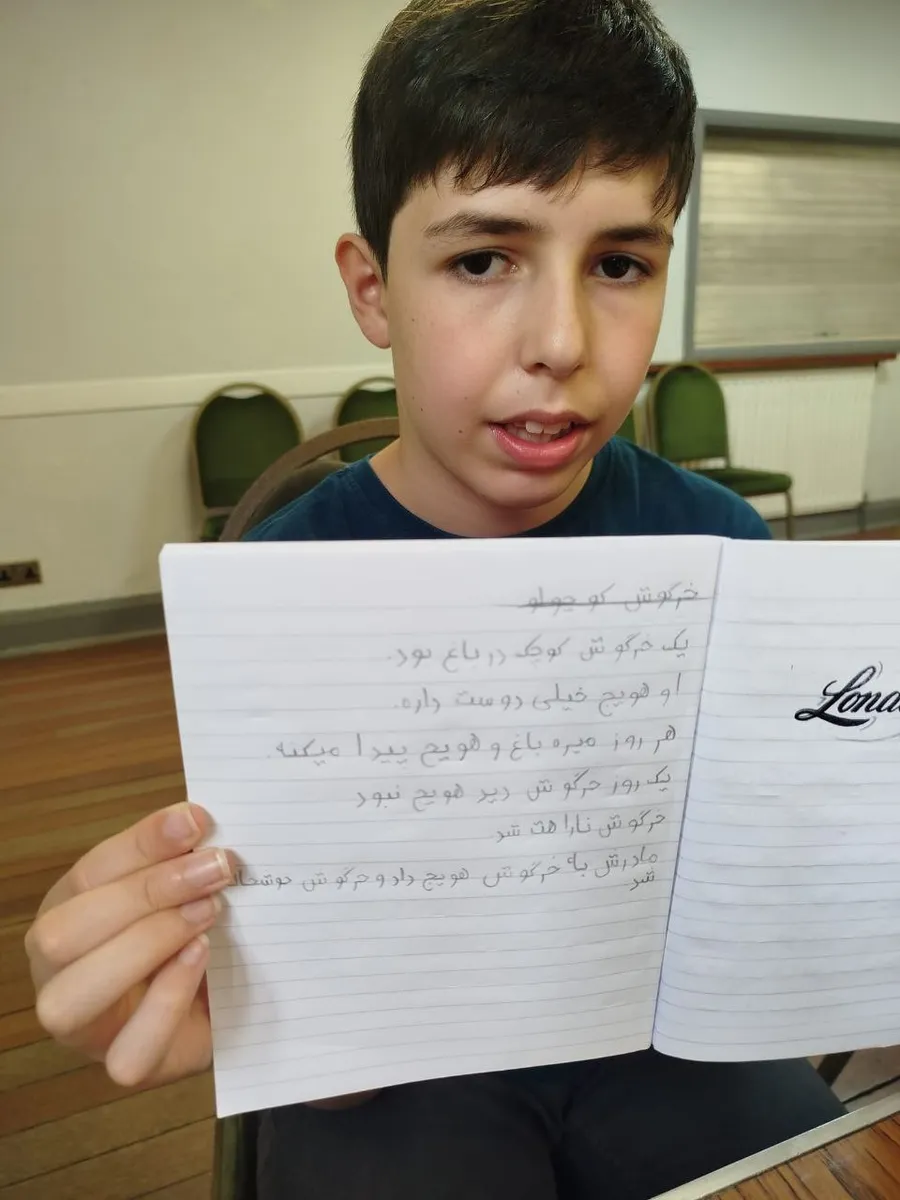 خرگوش کوچولو
یک خرگوش کوچک در باغ بود.
او هویج خیلی دوست داره.
هر روز میره باغ و هویج پیدا میکنه.
یک روز خرگوش دید هویج نبود
خرگوش ناراهت شد.
مادرش به خرگوش هویج داد و خرگوش خوشحال
شد.
Lond